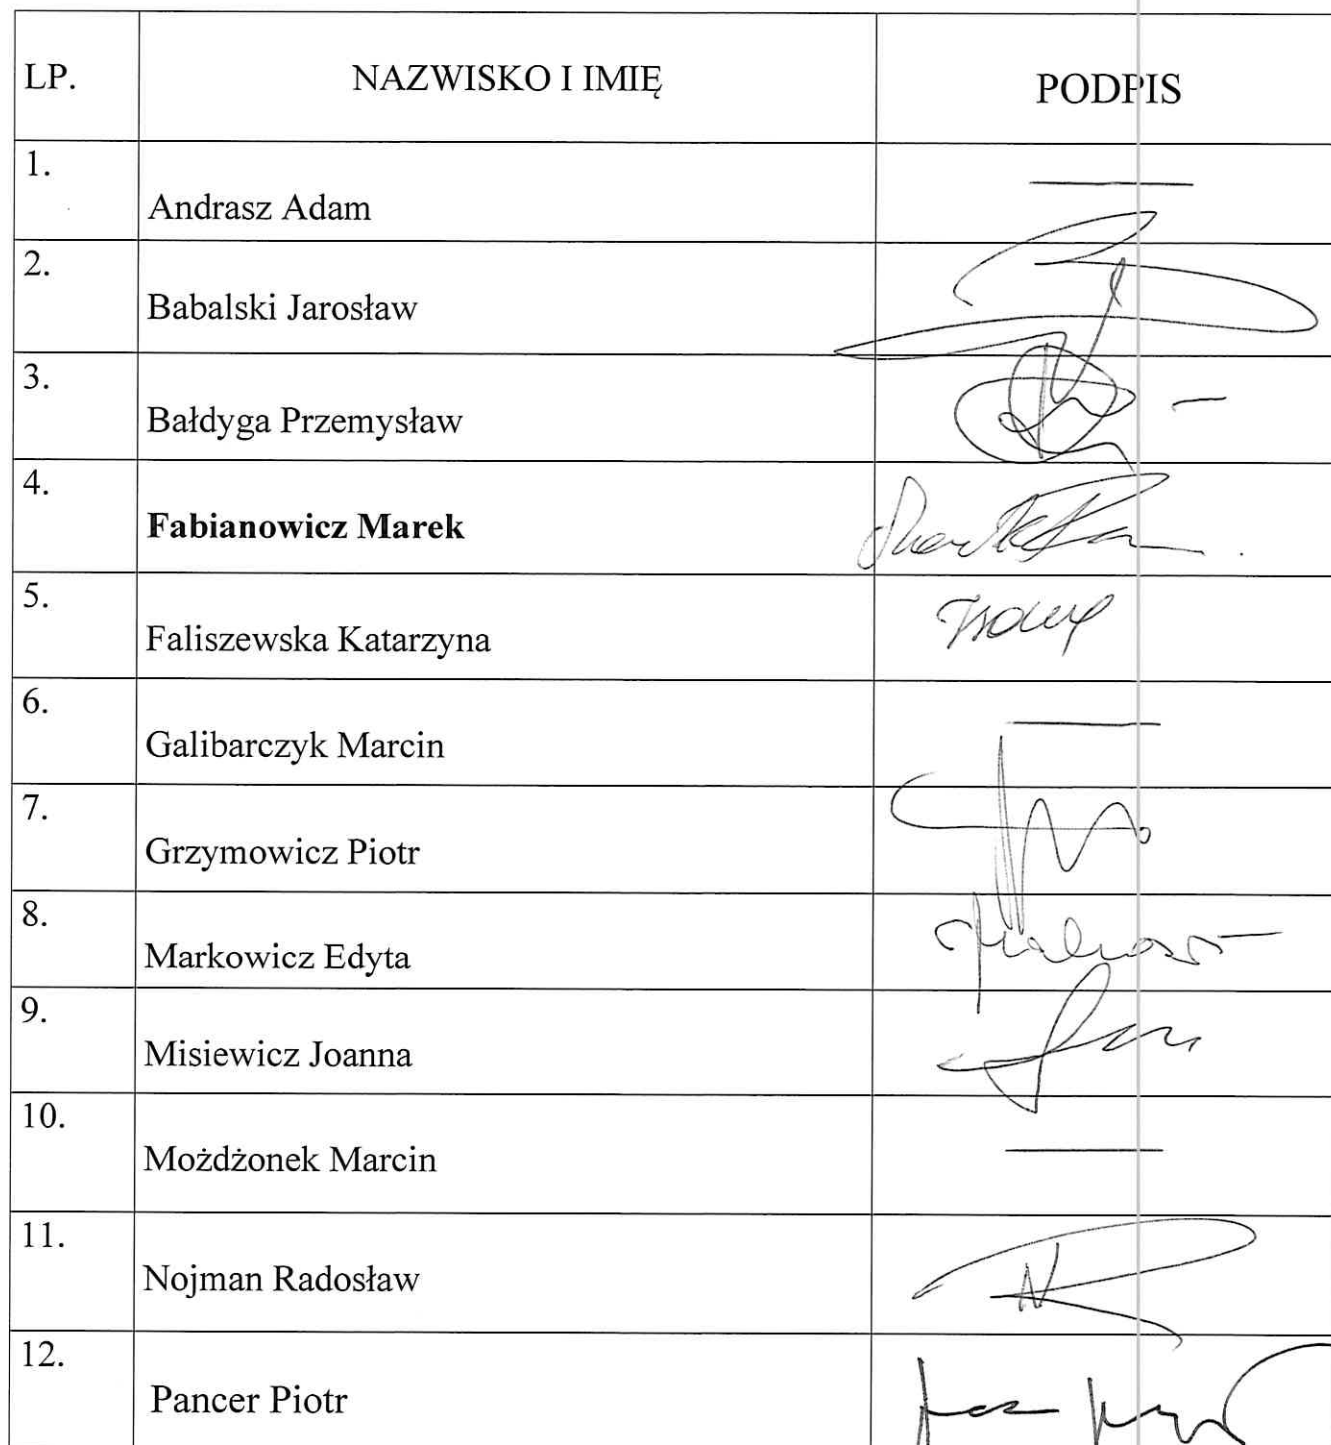 LP. NAZWISKO I IMIĘ PODPIS
1. Andrasz Adam
2. Babalski Jarosław
3. Bałdyga Przemysław
4. Fabianowicz Marek
5. Faliszewska Katarzyna
6. Galibarczyk Marcin
7. Grzymowicz Piotr
8. Markowicz Edyta
9. Misiewicz Joanna
10. Możdżonek Marcin
11. Nojman Radosław
12. Pancer Piotr